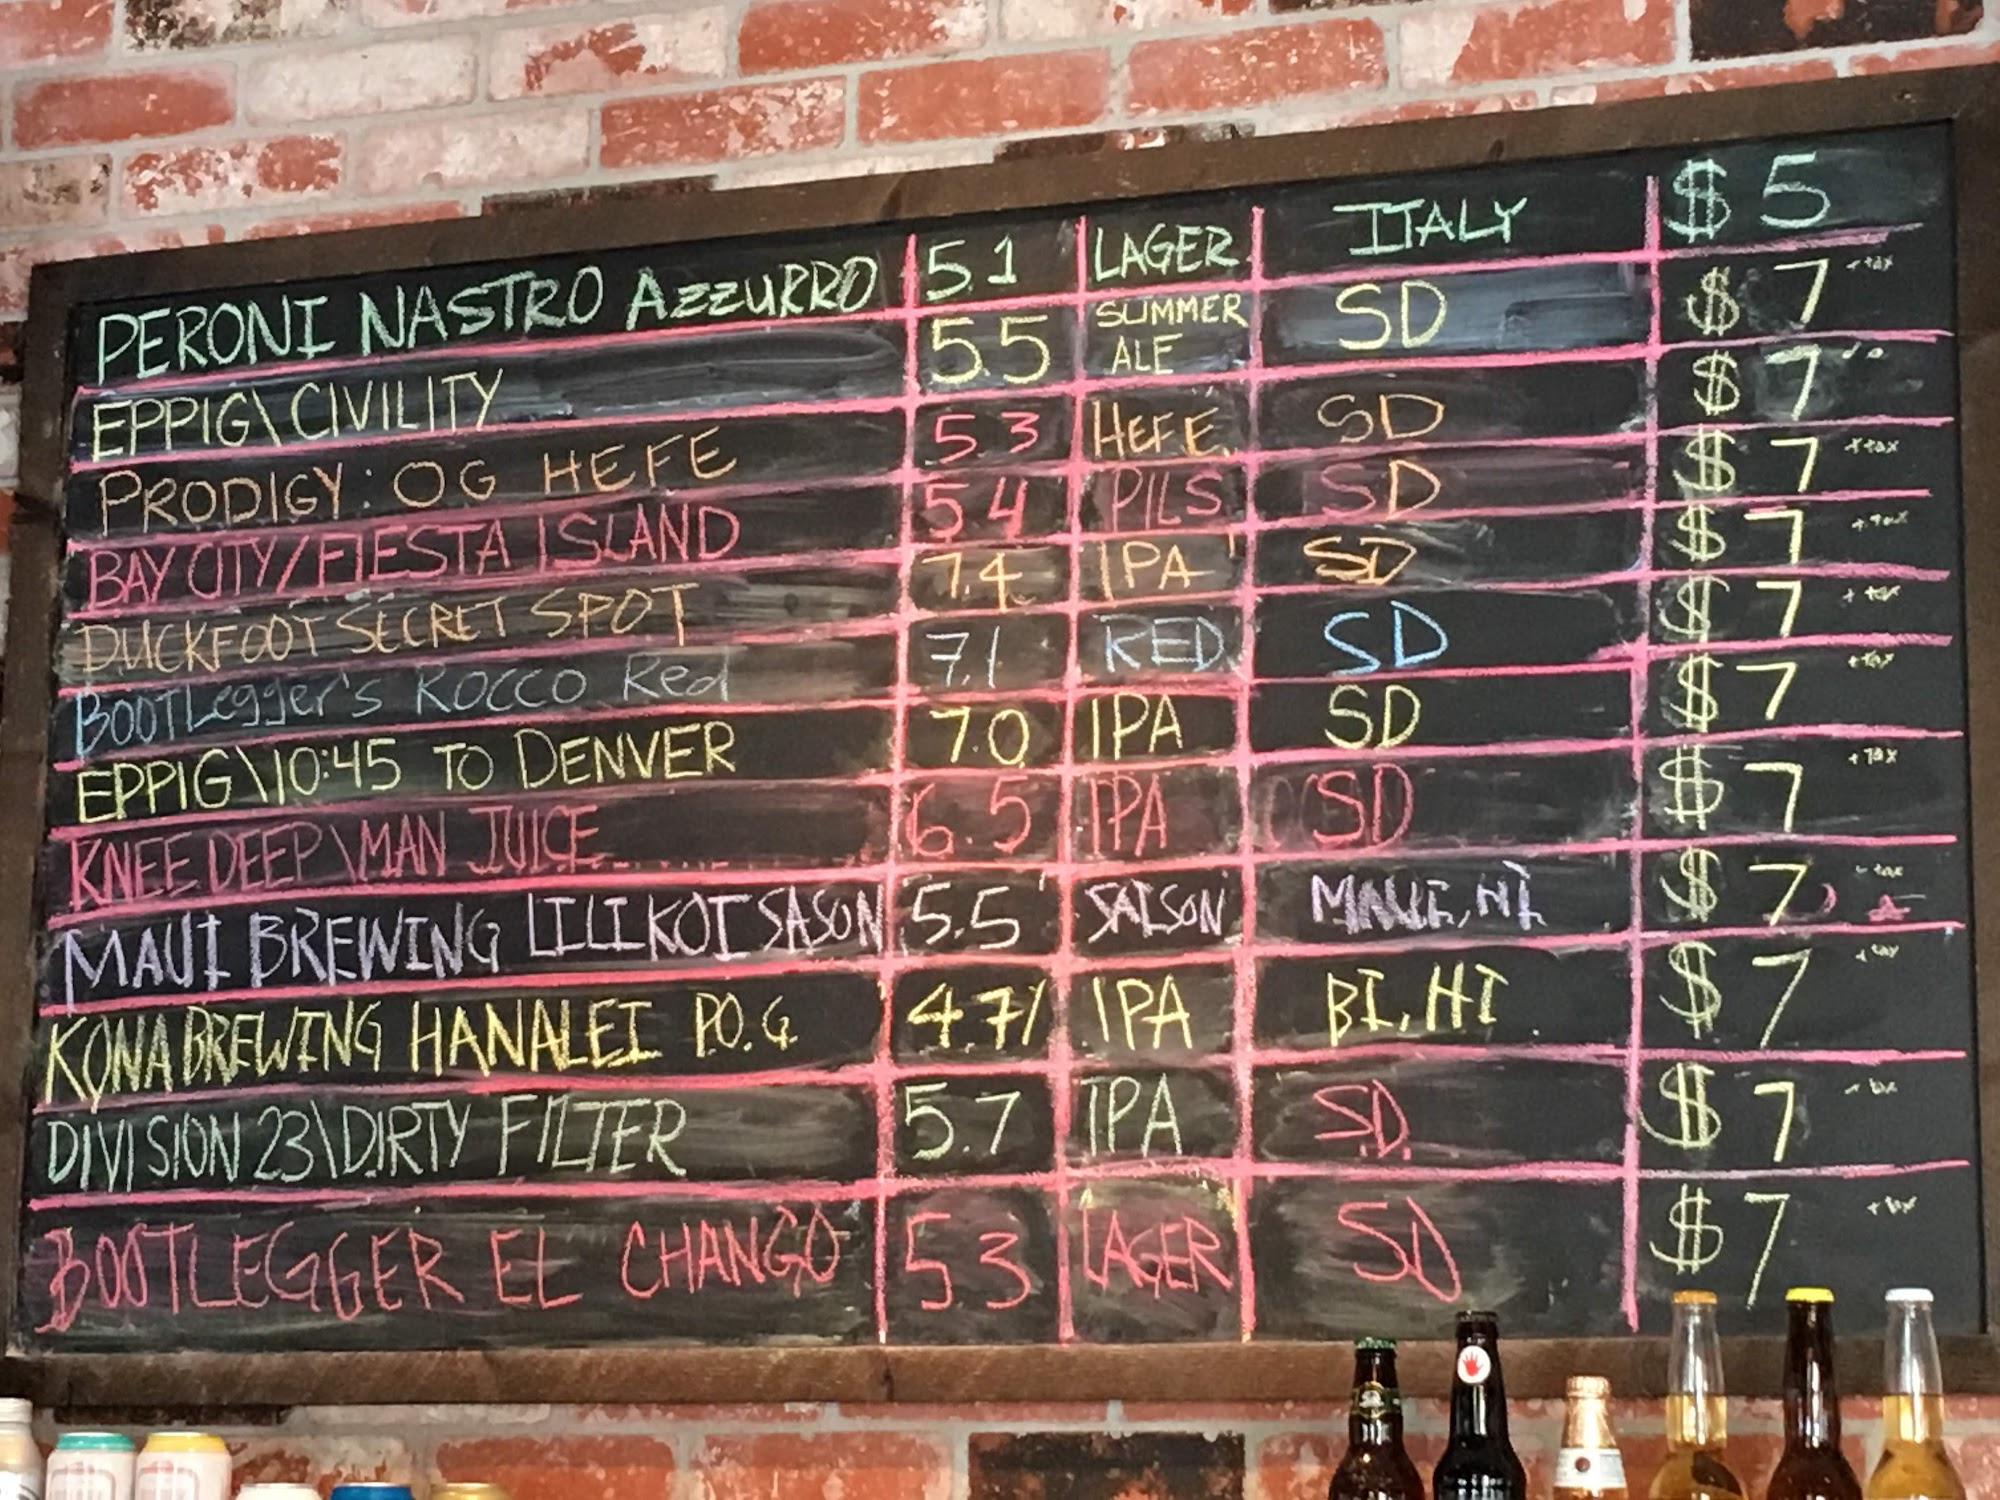 PERONI NASTRO AZZURRO 5.1 LAGER ITALY $5
EPPIG\CIVILITY 5.5 SUMMER ALE SD $7 +tax
PRODIGY: OG HEFE 5.3 HEFE. SD $7
BAY CITY/FIESTA ISLAND 5.4 PILS SD $7 +tax
DUCKFOOT SECRET SPOT 7.4 IPA SD $7 +tax
BOOTLegger's ROCCO Red 7.1 RED SD $7 +tax
EPPIG\10:45 TO DENVER 7.0 IPA SD $7 +tax
KNEE DEEP\MAN JUICE 6.5 IPA SD $7 +tax
MAUI BREWING LILIKOI SASON 5.5 SAISON MAUI, HI $7 +tax
KONA BREWING HANALEI P.O.G. 4.7% IPA BI, HI $7 +tax
DIVISION 23\DIRTY FILTER 5.7 IPA SD $7 +tax
BOOTLEGGER EL CHANGO 5.3 LAGER SD $7 +tax